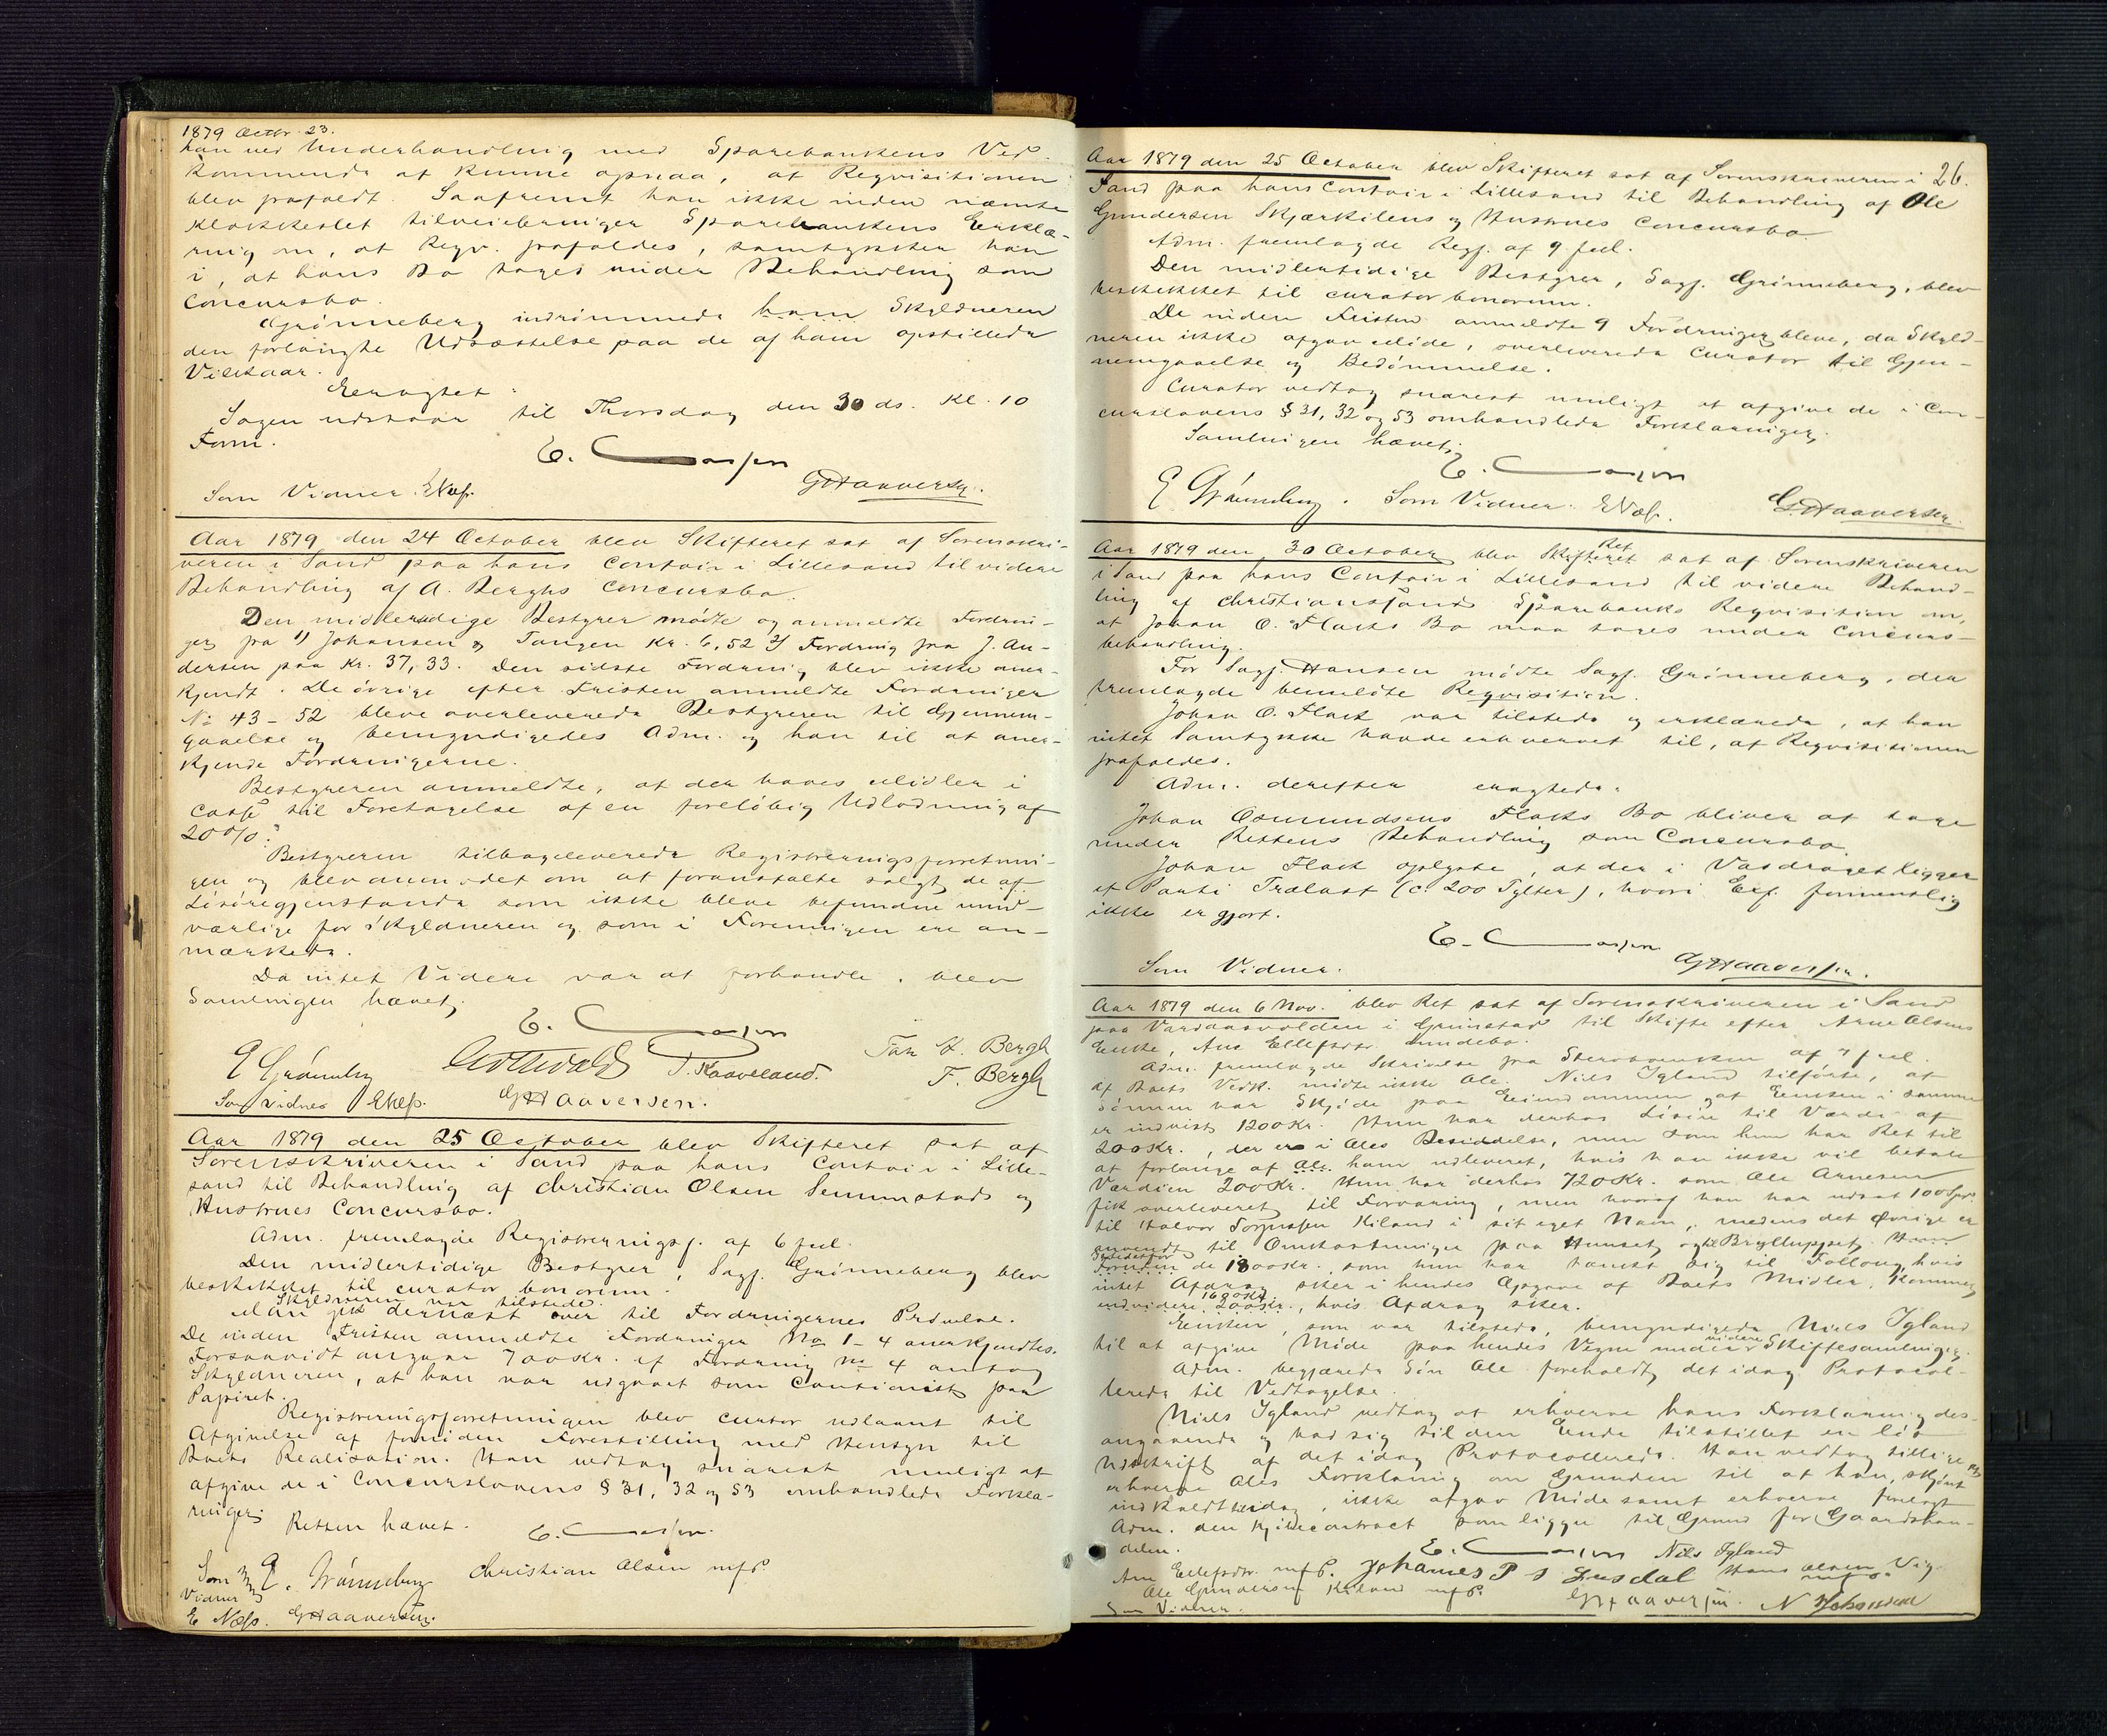 1879 Octbr. 23.
han ved Underhandling med Sparebankens Ved-
kommende at kunne opnaa, at Reqvisitionen
blev frafaldt. Saafremt han ikke inden nævnte
Klokkeslet tilveiebringer Sparebankens Erklæ-
ring om, at Reqv. frafaldes, samtykker han
i, at hans Bo tages under Behandling som
Concursbo.
Grønneberg indrømmede ham Skyldneren
den forlangte Udsættelse paa de af ham opstillede
Vilkaar.
Eragtet:
Sagen udstaar til Thorsdag den 30 ds. Kl. 10
Form.
E.
Som Vidner: ENæs. GHaaversen.
Aar 1879 den 24 October blev Skifteret sat af Sorenskri-
veren i Sand paa hans Contoir i Lillesand til videre
Behandling af A. Berghs Concursbo.
Den midlertidige Bestyrer mødte og anmeldte Fordrin-
ger fra 1) Johansen & Tangen Kr. 6,52 2) Fordring fra J. An-
dersen paa Kr. 37,33. Den sidste Fordring blev ikke aner-
kjendt. De øvrige efter Fristen anmeldte Fordringer
No 43-52 bleve overleverede Bestyreren til Gjennem-
gaaelse og bemyndigedes Adm. og han til at aner-
kjende Fordringerne.
Bestyreren anmeldte, at der haves Midler i
Cassa til Foretagelse af en foreløbig Udlodning af
20%.
Bestyreren tilbageleverede Registreringsforretnin-
gen og blev anmodet om at foranstalte solgt de af
Løsøregjenstande som ikke bleve befundne und-
værlige for Skyldneren og som i Foreningen ere an-
mærkede.
Da intet Videre var at forhandle, blev
Samlingen hævet.
E.
E Grønneberg T. Kaaveland. F. Bergh
Som Vidner ENæs. GHaaversen.
Aar 1879 den 25 October blev Skifteret sat af
Sorenskriveren i Sand paa hans Contoir i Lille-
sand til Behandling af Christian Olsen Semmstads og
Hustrues Concursbo.
Adm. fremlagde Registreringsf. af 6 ful.
Den midlertidige Bestyrer, Sagf. Grønneberg blev
beskikket til curator bonorum.
Skyldneren var tilstede.
Man gik dernæst over til Fordringernes Prøvelse.
De inden Fristen anmeldte Fordringer No 1-4 anerkjendtes.
Forsaavidt angaar 700 Kr. af Fordring No 4 antog
Skyldneren, at han var udgaaet som Cautionist paa
Papiret.
Registreringsforretningen blev curator udlaant til
Afgivelse af fornøden Forestilling med Hensyn til
Boets Realisation. Han vedtog snarest muligt at
afgive de i Concurslovens § 31, 32 og 53 omhandlede Forkla-
ringer.
Retten hævet. E.
Som Vidner E. Grønneberg Christian Olsen mfP.
E Næs. GHaaversen.
26.
Aar 1879 den 25 October blev Skifteret sat af Sorenskriveren i
Sand paa hans Contoir i Lillesand til Behandling af Ole
Gundersen Skjærkilens og Hustrues Concursbo.
Adm. fremlagde Regf. af 9 ful.
Den midlertidige Bestyrer, Sagf. Grønneberg, blev
beskikket til curator bonorum.
De inden Fristen anmeldte 9 Fordringer bleve, da Skyld-
neren ikke afgav Møde, overleverede Curator til Gjen-
nemgaaelse og Bedømmelse.
Curator vedtog snarest muligt at afgive de i Con-
curslovens § 31, 32 og 53 omhandlede Forklaringer.
Samlingen hævet.
E.
E Grønneberg. Som Vidner. ENæs. GHaaversen.
Aar 1879 den 30 October blev Skifteret Ret sat af Sorenskriveren
i Sand paa hans Contoir i Lillesand til videre Behand-
ling af Christianssands Sparebanks Reqvisition om,
at Johan O. Flaks Bo maa tages under Concurs-
behandling.
For Sagf. Hansen mødte Sagf. Grønneberg, der
fremlagde bemeldte Reqvisition.
Johan O. Flak var tilstede og erklærede, at han
intet Samtykke havde erhvervet til, at Reqvisitionen
frafaldes.
Adm. derefter eragtede:
Johan Osmundsens Flaks Bo bliver at tage
under Rettens Behandling som Concursbo.
Johan Flak oplyste, at der i Vasdraget ligger
et Parti Trælast (c. 200 Tylter), hvori Exf. formentlig
ikke er gjort.
E.
Som Vidner. GHaaversen.
Aar 1879 den 6 Nov. blev Ret sat af Sorenskriveren i Sand
paa i Grimstad til Skifte efter Arne Olsens
Enke, Ane Ellefsdtr.
Adm. fremlagde Skrivelse fra af 4 ful.
Af Boets Vedk. mødte ikke Ole. Niels Igland tilførte, at
Sønnen har Skjøde paa Eiendommen, at Enken i samme
er indvist 1200 Kr. Hun har derhos Løsøre til Værdi af
200 Kr., der er i Oles Besiddelse, men som hun har Ret til
at forlange af Ole ham udleveret, hvis han ikke vil betale
Værdien 200 Kr. Hun har derhos 720 Kr. som Ole Arnesen
fik overleveret til Forvaring, men hvoraf han har udsat 100 Spd
til Halvor Kiland i sit eget Navn, medens det Øvrige er
anvendt til Omkostninger paa Huuset og til Brylluppet.
de 1800 Kr. som hun har tænkt sig til Folloug, hvis
intet Afdrag sker i hendes Opgave af Boets Midler,
endvidere 200 Kr., hvis Afdrag sker.
Enken, som var tilstede, bemyndigede Niels Igland
til at afgive Møde paa hendes Vegne under videre Skiftesamlinger.
Adm. begjærede Søn Ole foreholdt det idag Protocol-
lerede til Vedtagelse.
Niels Igland vedtog at erhverve hans Forklaring des-
angaaende og bad sig til den Ende tilstillet en
Udskrift af det idag Protocollerede. Han vedtog tillige at
erhverve Oles Forklaring om Grunden til at han, skjønt
indkaldt til idag, ikke afgav Møde samt erhverve forelagt
Adm. den Kjøbecontract som ligger til Grund for Gaardshan-
delen.
E. Nils Igland
Ane Ellefsdtr. mfP. Johannes P. Hans Olsen
Ole Gundersen Kiland mfP. GHaaversen. N
Som Vidner.